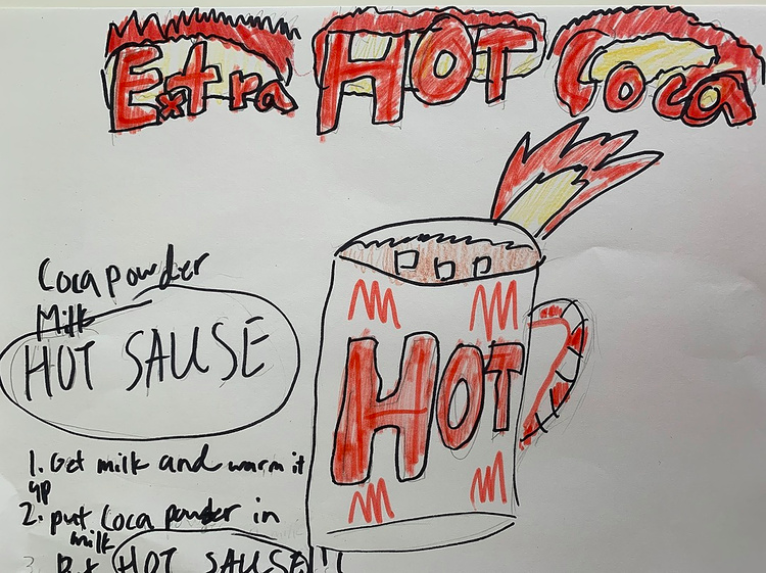 Extra HOT Coca
Coca powder
Milk
HOT SAUSE
HOT
1. Get milk and warm it
up
2. put Coca powder in
milk
3. Put HOT SAUSE!!